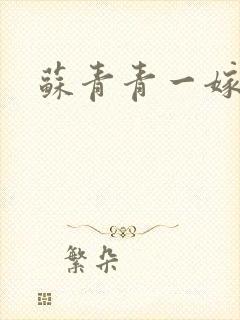 蘇青青一嫁
繁朵